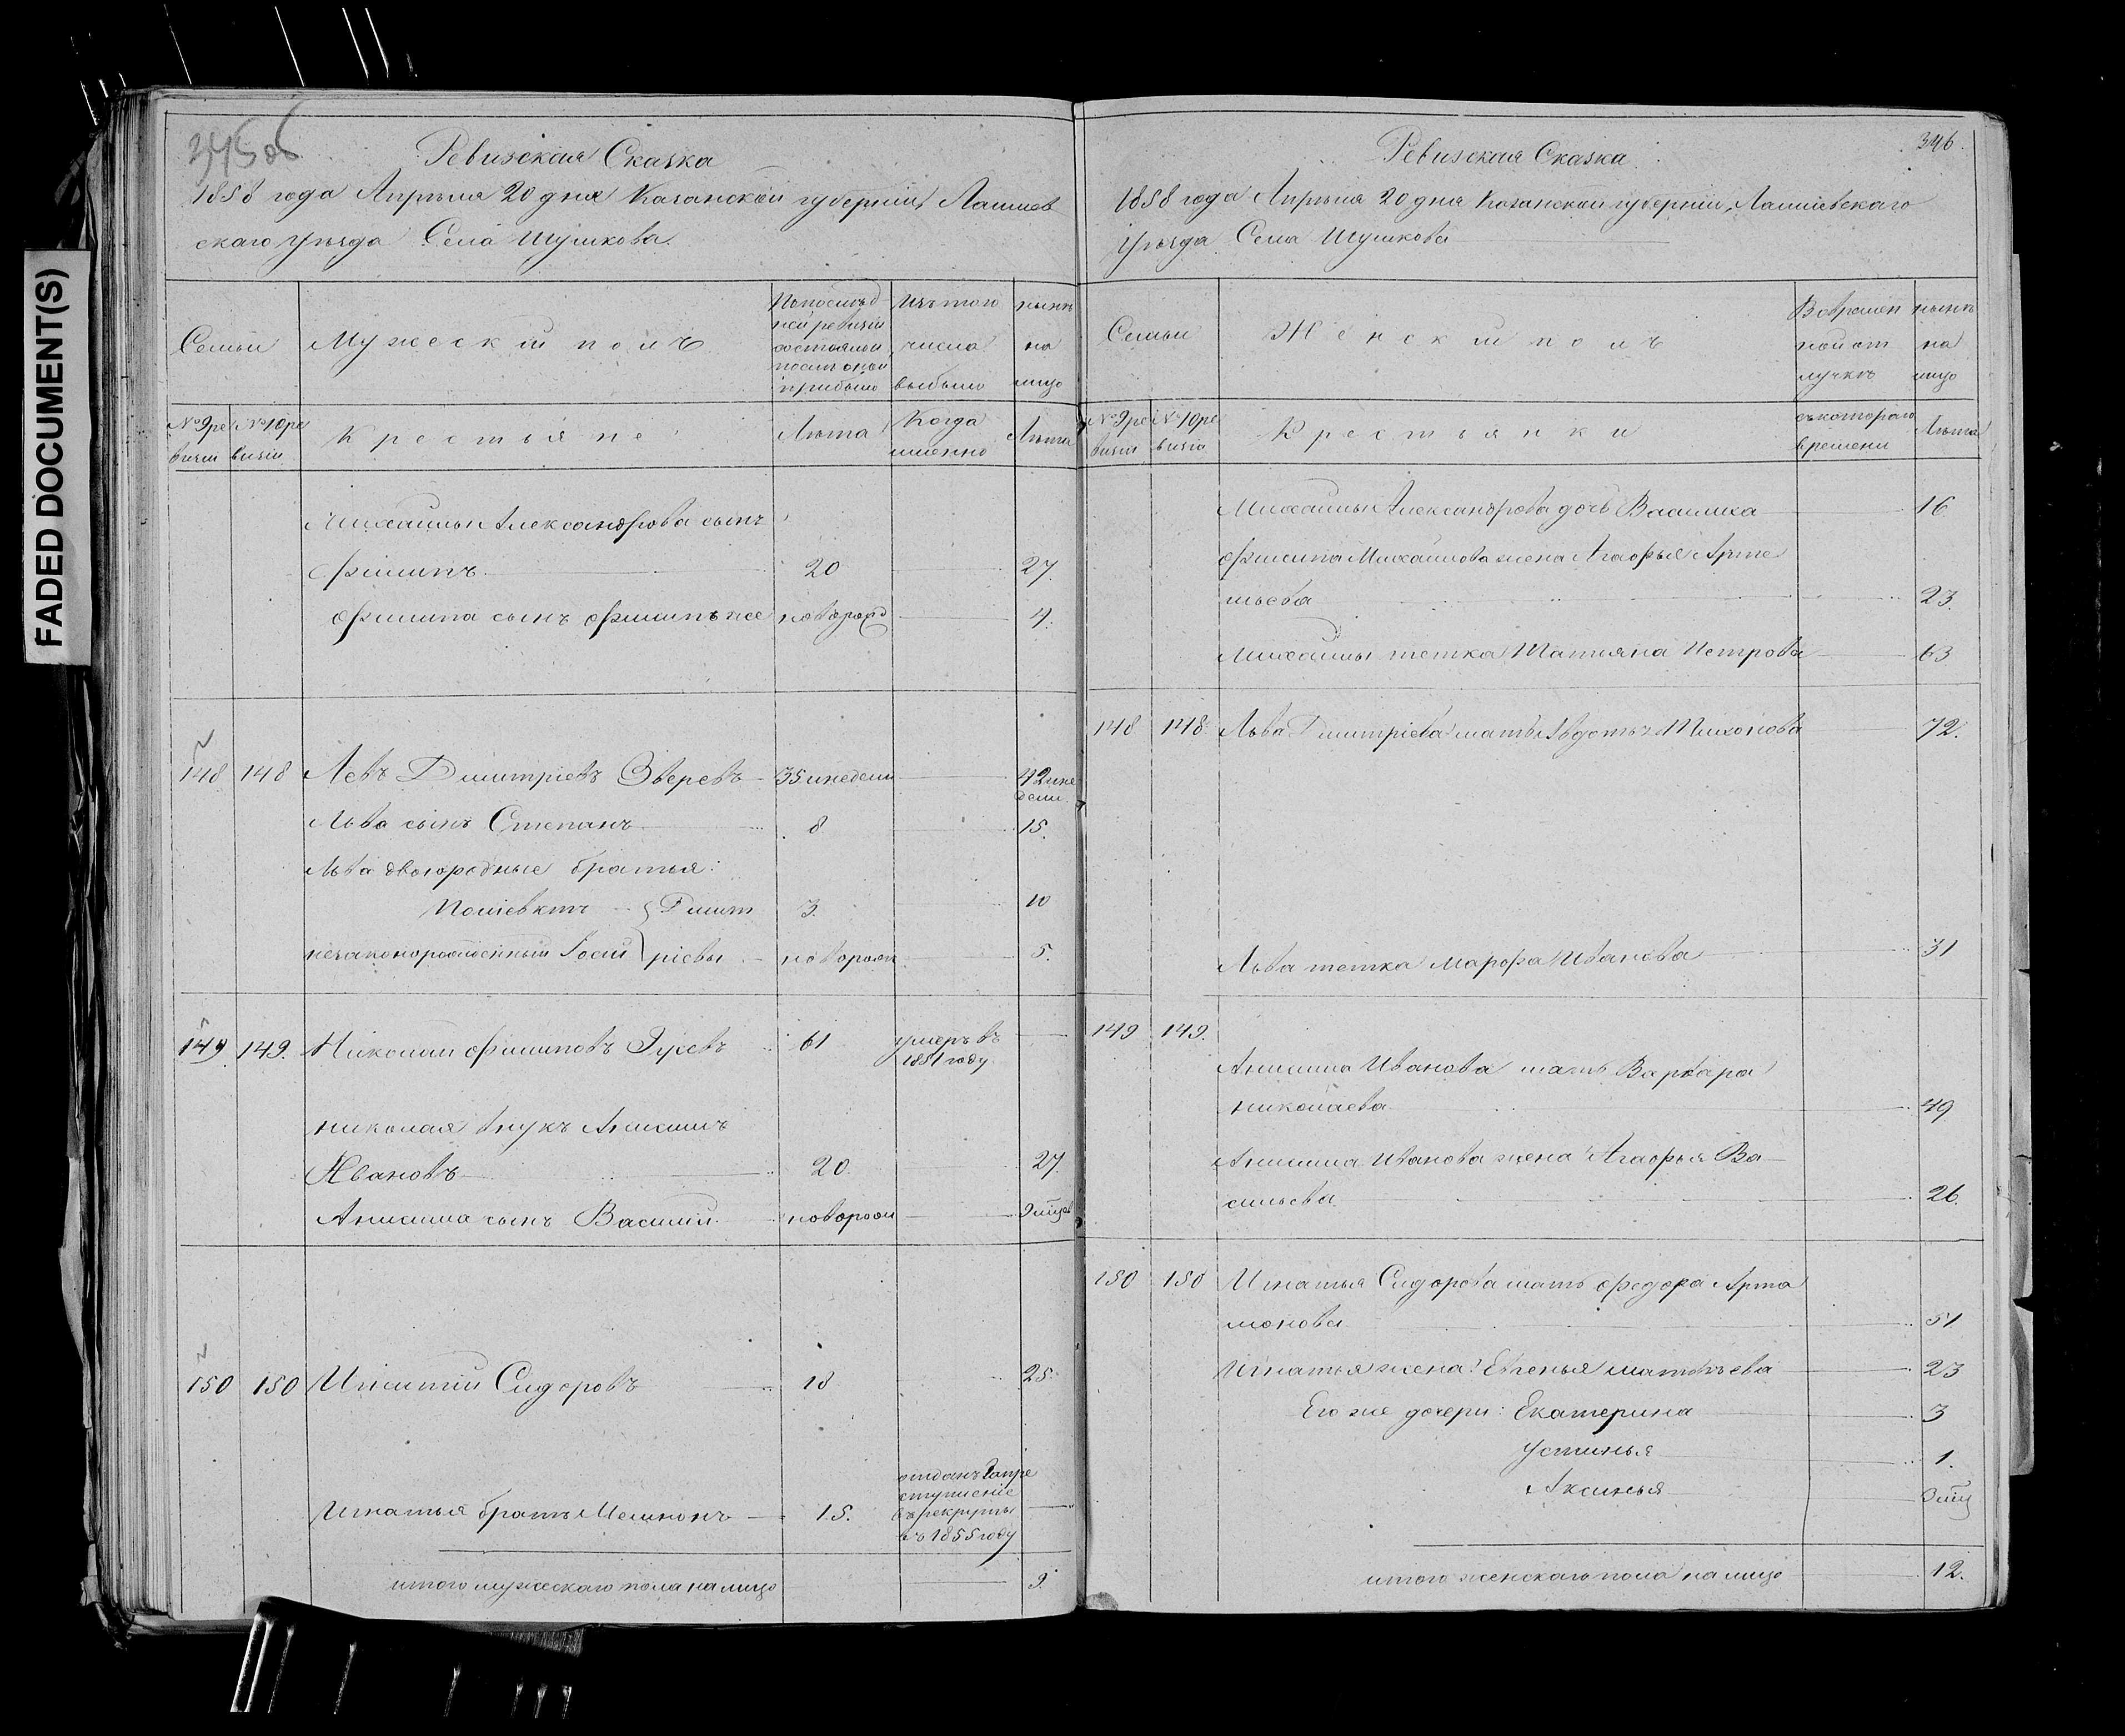 FADED DOCUMENT(S)
345 об
Ревизская Сказка
1858 года Апрѣля 20 дня Казанской губерніи, Лаишев
скаго уѣзда Села Шушкова.
Семьи
Мужеский полъ
По послѣд
ней ревизіи
состояло и
послѣ оной
прибыло
Изъ того
числа
выбыло
нынѣ
на
лицо
№ 9 ре
визіи
№ 10 ре
визіи
Крестьяне
Лѣта
Когда
именно
Лѣта
Михайлы Александрова сынъ
Филипъ 20 27.
Филипа сынъ Филипъ же новорожд 4.
148 148 Левъ Дмитріевъ Зверевъ 35 и недели 42 и не
дели
Льва сынъ Степанъ 8 15.
Льва двоюродные братья:
Полиевктъ Дмит 3. 10
незаконорожденный ріевы новорож 5.
149 149. Николай Филиповъ Зуевъ 61 умеръ въ
1851 году
Николая внукъ Анисимъ
Ивановъ 20. 27.
Анисима сынъ Василий новорож 9 мѣся
150 150 Игнатий Сидоровъ 18 25.
отданъ за пре
ступление
въ рекруты
въ 1855 году
Игнатья братъ 15.
итого мужескаго пола на лицо 9.
346.
Ревизская Сказка
1858 года Апрѣля 20 дня Казанской губерніи, Лаишевскаго
уѣзда Села Шушкова
Семьи
Женский полъ
Во времен
ной от
лучкѣ
нынѣ
на
лицо
№ 9 ре
визіи
№ 10 ре
визіи
Крестьянки
съ котораго
времени
Лѣта
Михайлы Александрова дочь Василиса 16
Филипа Михайлова жена Агафья Арте
мьева 23.
Михайлы тетка Татияна Петрова 63
148 148 Льва Дмитріева мать Авдотья Тихонова 72.
Льва тетка Марфа Иванова 31
149 149.
Анисима Иванова мать Варвара
Николаева 49
Анисима Иванова жена Агафья Ва
сильева 26.
150 150 Игнатья Сидорова мать Федора Арта
монова 51
Игнатья жена Евгенья Матвѣева 23
Его же дочери: Екатерина 3
Устинья 1.
Аксинья 3 мѣц
итого женскаго пола на лицо 12.